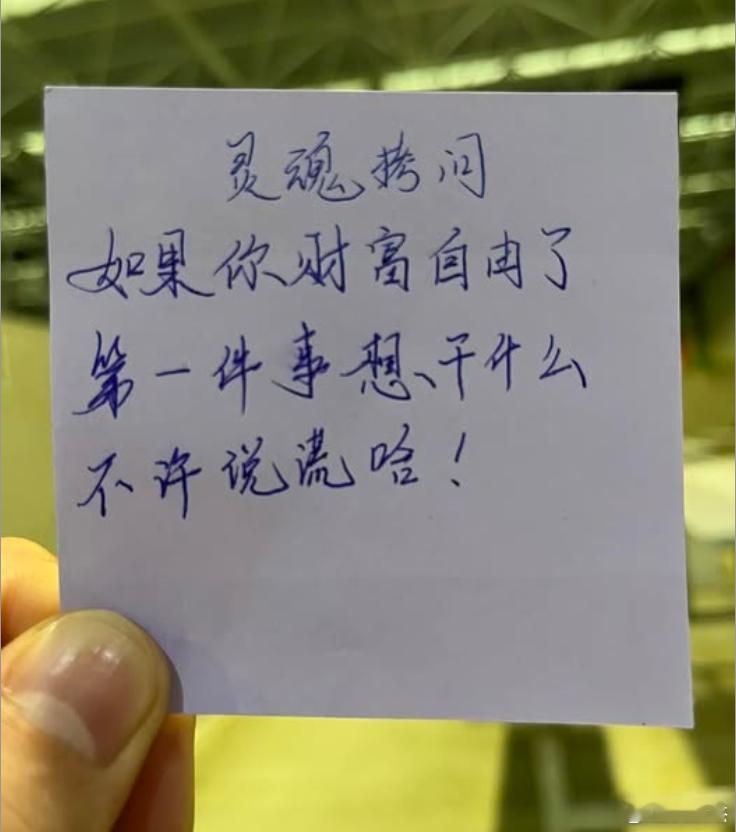 灵魂拷问
如果你财富自由了
第一件事想干什么
不许说谎哈!